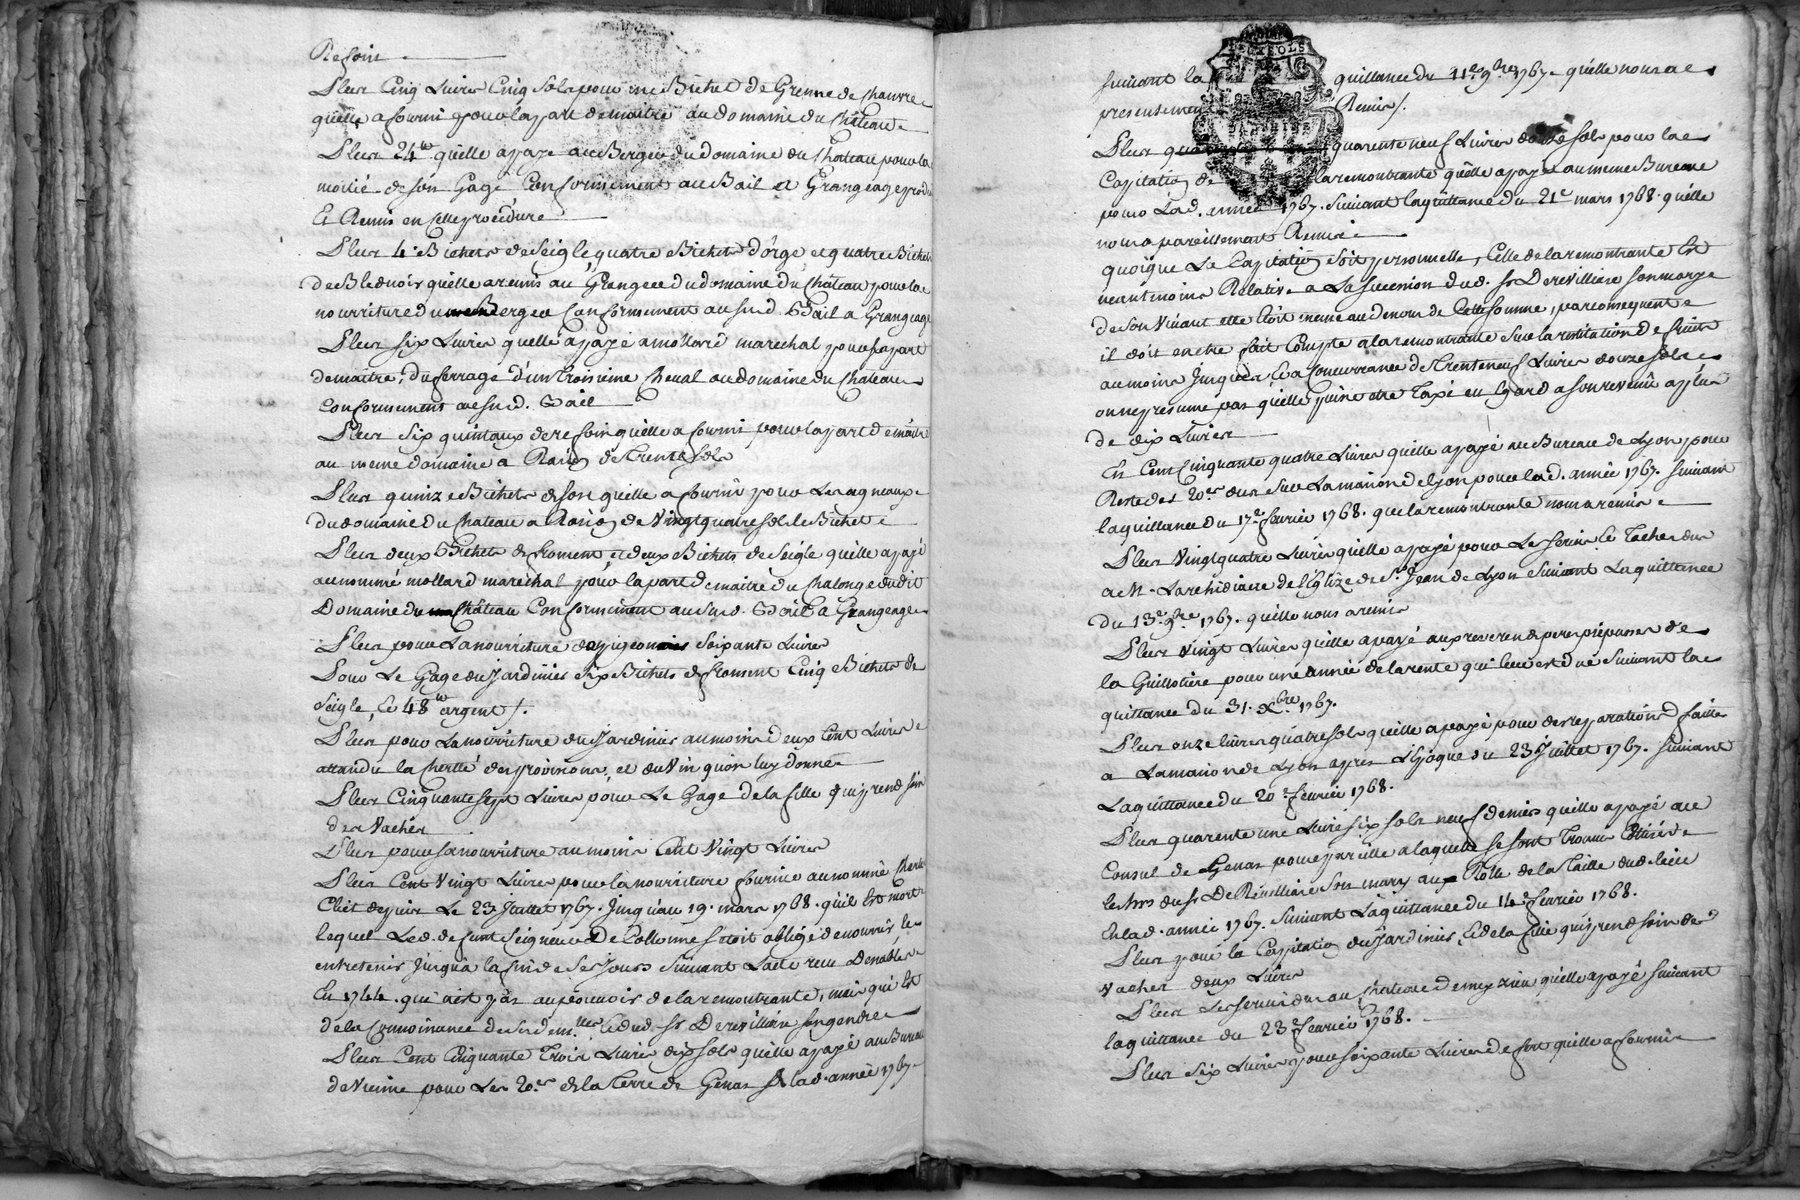 Refoin
Plus Cinq Livres Cinq Sols pour un Bichet de Grenne de Chanvre
quelle a fourni pour la part de maitre au domaine du Château
Plus 24# quelle a payé au Berger du domaine du Chateau pour la
moitié de son Gage Conformement au Bail a Grangeage produit
Et Remis en Cette procédure
Plus 4 Bichets de Seigle quatre Bichets d'orge et quatre Bichets
de Bled noir quelle a remis au Granger du domaine du Château pour la
nourriture du Berger Conformement au sud. Bail a Grangeage
Plus six Livres quelle a payé a mollard marechal pour sa part
de maitre, du ferrage d'un troisieme Cheval au domaine du Chateau
Conformement au sud. Bail
Plus Six quintaux de refoin quelle a fourni pour la part de maitre
au meme domaine a Raison de Trente sols
Plus quinze Bichets de son quelle a fourni pour Les agneaux
du domaine du Chateau a Raison de Vingt quatre sols le Bichet
Plus deux Bichets de froment et deux Bichets de Seigle quelle a payé
au nommé mollard maréchal pour la part de maitre du Chalonge dudit
Domaine du Château Conformement au sud. Bail a Grangeage
Plus pour La nourriture des pigeons Soixante Livres
Pour Le Gage du Jardinier Six Bichets de froment Cinq Bichets de
Seigle, et 48# argent
Plus pour La nourriture du Jardinier au moins deux Cent Livres
attandu la Cherté des provisions, et du Vin qu'on luy donne
Plus Cinquante sept Livres pour Le Gage de la fille qui prend soin
des Vaches
Plus pour sa nourriture au moins Cent Vingt Livres
Plus Cent Vingt Livres pour la nourriture fournie au nommé
depuis Le 23 Juillet 1767. Jusqu'au 19. mars 1768. qu'il Est mort
lequel Led. defunt Seigneur De Collonne s'etoit obligé de nourrir, et
entretenir Jusqu'a la fin de Ses Jours Suivant L'acte recu
En 1744. qui n'est pas au pouvoir de la remontrante, mais qui Est
de la Connoissance de Lesd. dem.lles et dud. Sr. De revilliare son gendre
Plus Cent Cinquante Trois Livres dix sols quelle a payé au Bureau
de Vienne pour Les 20es de la Terre de Genas Lad. année 1767.
suivant la quittance du 11e 9bre 1767. quelle nous a
presentement Remis.
Plus quarente neuf Livres douze sols pour la
Capitation de la remontrante quelle a payé au meme Bureau
pour Lad. année 1767. Suivant la quittance du 21e mars 1768. quelle
nous a pareillement Remise
quoique La Capitation soit personnelle, Celle de la remontrante Est
neantmoins Relative a La succession dud. Sr Derevilliare son mary
de son Vivant elle Etoit meme au dessous de Cette somme, par consequent
il doit en etre fait Compte a la remontrante Sur la restitution de fruits
au moins Jusques et a Concurrance de Trente neuf Livres douze sols
on ne presume pas quelle puisse etre Taxé eu Egard a son revenu a plus
de dix Livres
Et Cent Cinquante quatre Livres quelle a payé au Bureau de Lyon pour
Reste des 20es dus Sur La maison de Lyon pour lad. année 1767. suivant
la quittance du 17e fevrier 1768. que la remontrante nous a remis
Plus Vingt quatre Livres quelle a payé pour Le servis
a M. L'archidiacre de l'Eglize de St. Jean de Lyon Suivant La quittance
du 13e 9bre 1767. quelle nous a remis
Plus Vingt Livres quelle a payé aux reverends peres picpusses de
la Guillotiere pour une année de la rente qui leur est due Suivant la
quittance du 31. Xbre 1767.
Plus onze livres quatre sols quelle a payé pour des reparations faites
a La maison de Lyon apres L'Epoque du 23 Juillet 1767. suivant
La quittance du 20e fevrier 1768.
Plus quarente une Livre six sols neuf deniers quelle a payé au
Consul de Genas pour pareille a laquelle se sont trouvés Cottisés
les hrs du Sr De Révilliare Son mary aux Rolle de la Taille dud. lieu
En lad. année 1767. Suivant La quittance du 14e fevrier 1768.
Plus pour la Capitation du Jardinier, et de la fille qui prend soin des
Vaches deux Livres
Plus Les servis dus au Chateau de meyzieu quelle a payé suivant
la quittance du 23e fevrier 1768.
Plus Six Livres pour soixante Livres de quelle a fourni